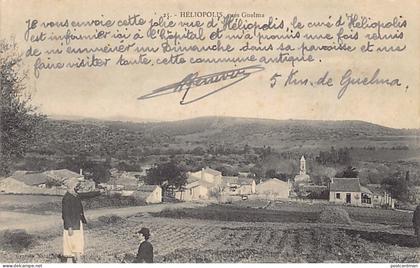 15. - HELIOPOLIS, près Guelma
Je vous envoie cette jolie vue d'Héliopolis, le curé d'Héliopolis
est infirmier ici à l'hôpital et m'a promis une fois remis
de m'emmener un Dimanche dans sa paroisse et me
faire visiter toute cette commune antique.
5 Km. de Guelma.
postcardman